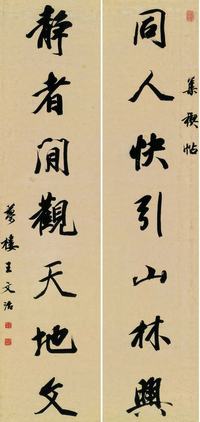 集禊帖
同人快引山林興
靜者閒觀天地文
夢樓王文治